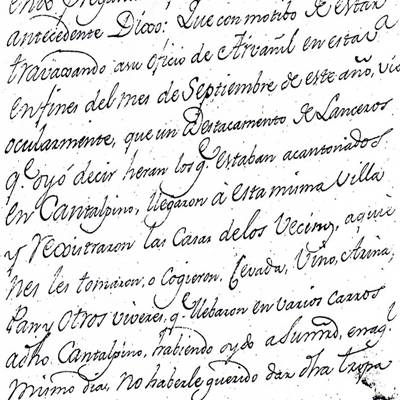 antecedente Dixo: Que con motibo de estar
travaxando a su oficio de Arvañil en esta vª
en fines del mes de Septiembre de este año, vio
ocularmente, que un Destacamento de Lanceros
q.e oyó decir heran los q.e estaban acantonados
en Cantalpino, llegaron à esta misma Villa
y rexistraron las Casas de los Vecin.s, a quie
nes les tomaron, o Cogieron Cevada, Vino, Arina,
Pan y Otros viveres, q.e llebaron en varios Carros
a dho. Cantalpino, habiendo oydo a su mrd., en aq.l
mismo dia, no haberle querido dar dha tropa